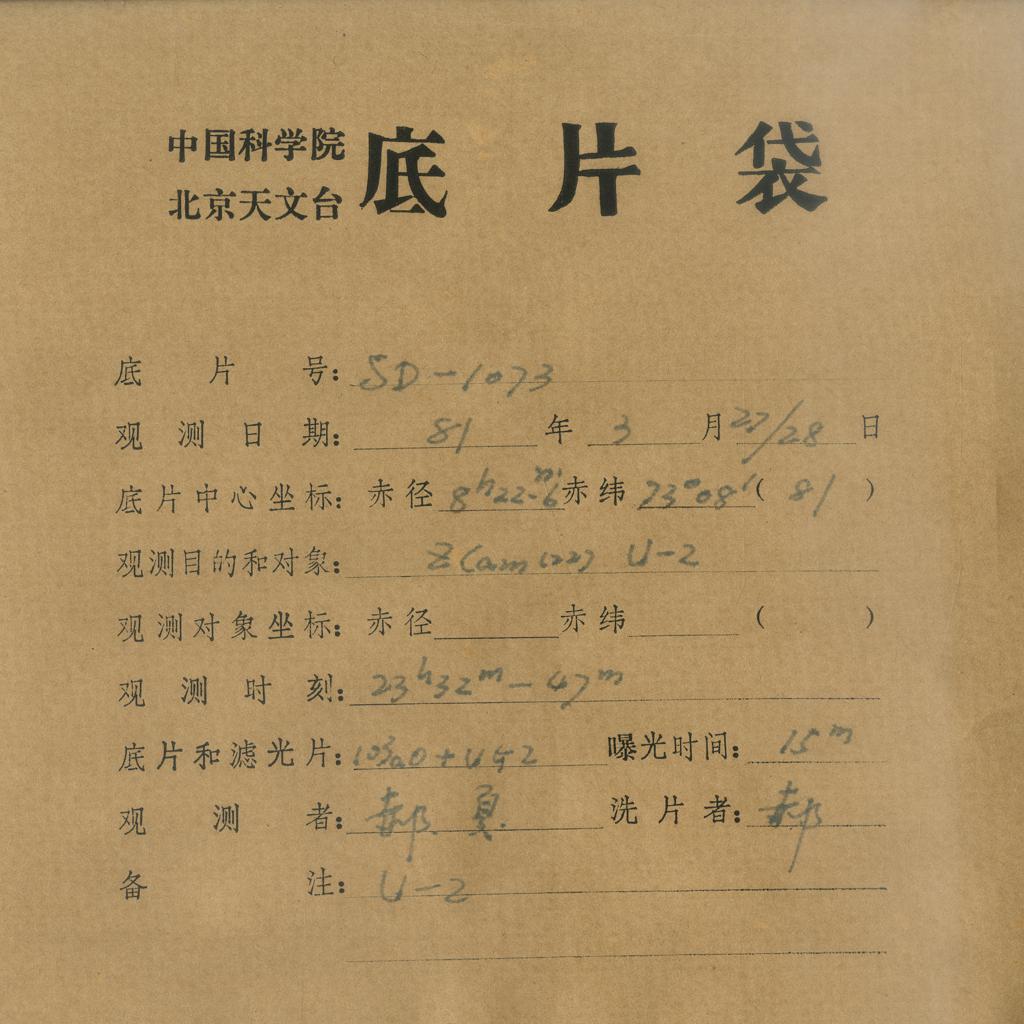 中国科学院
北京天文台
底片袋
底片号：SD-1073
观测日期：81年3月27/28日
底片中心坐标：赤径8h22m.6赤纬73°08′(81)
观测目的和对象：Z Cam (22) U-2
观测对象坐标：赤径 赤纬 ( )
观测时刻：23h32m-47m
底片和滤光片：103aO+UG2 曝光时间：15m
观测者：郝 夏 洗片者：郝
备注：U-2